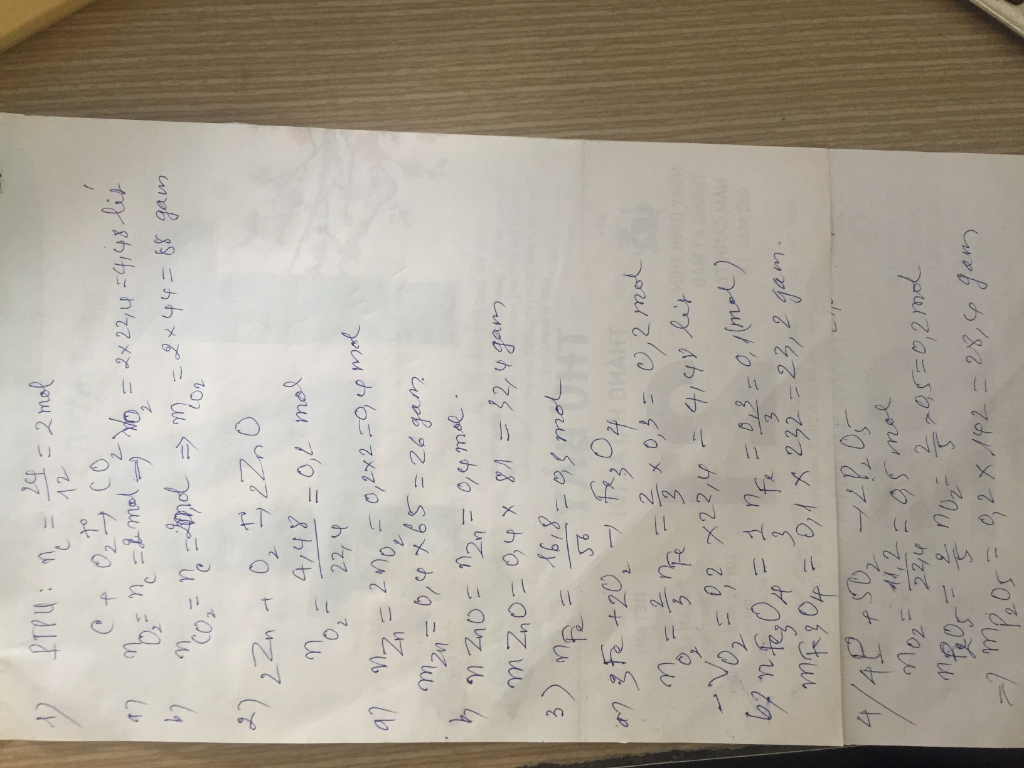 1) PTPƯ: n_C = 24/12 = 2 mol
C + O₂ t°→ CO₂
a) n_O₂ = n_C = 2 mol ⇒ V_O₂ = 2 x 22,4 = 4,48 lít
b) n_CO₂ = n_C = 2 mol ⇒ m_CO₂ = 2 x 44 = 88 gam
2) 2Zn + O₂ t°→ 2ZnO
n_O₂ = 4,48/22,4 = 0,2 mol
a) n_Zn = 2n_O₂ = 0,2x2 = 0,4 mol
m_Zn = 0,4 x 65 = 26 gam
b) n ZnO = n_Zn = 0,4 mol.
m ZnO = 0,4 x 81 = 32,4 gam
3) n_Fe = 16,8/56 = 0,3 mol
a) 3Fe + 2O₂ → Fe₃O₄
n_O₂ = 2/3 n_Fe = 2/3 x 0,3 = 0,2 mol
- V_O₂ = 0,2 x 22,4 = 4,48 lít
b) n Fe₃O₄ = 1/3 n_Fe = 0,3/3 = 0,1 (mol)
m Fe₃O₄ = 0,1 x 232 = 23,2 gam.
4/ 4P + 5O₂ → 2P₂O₅
n_O₂ = 11,2/22,4 = 0,5 mol
n_P₂O₅ = 2/5 n_O₂ = 2/5 x 0,5 = 0,2 mol
=) m P₂O₅ = 0,2 x 142 = 28,4 gam